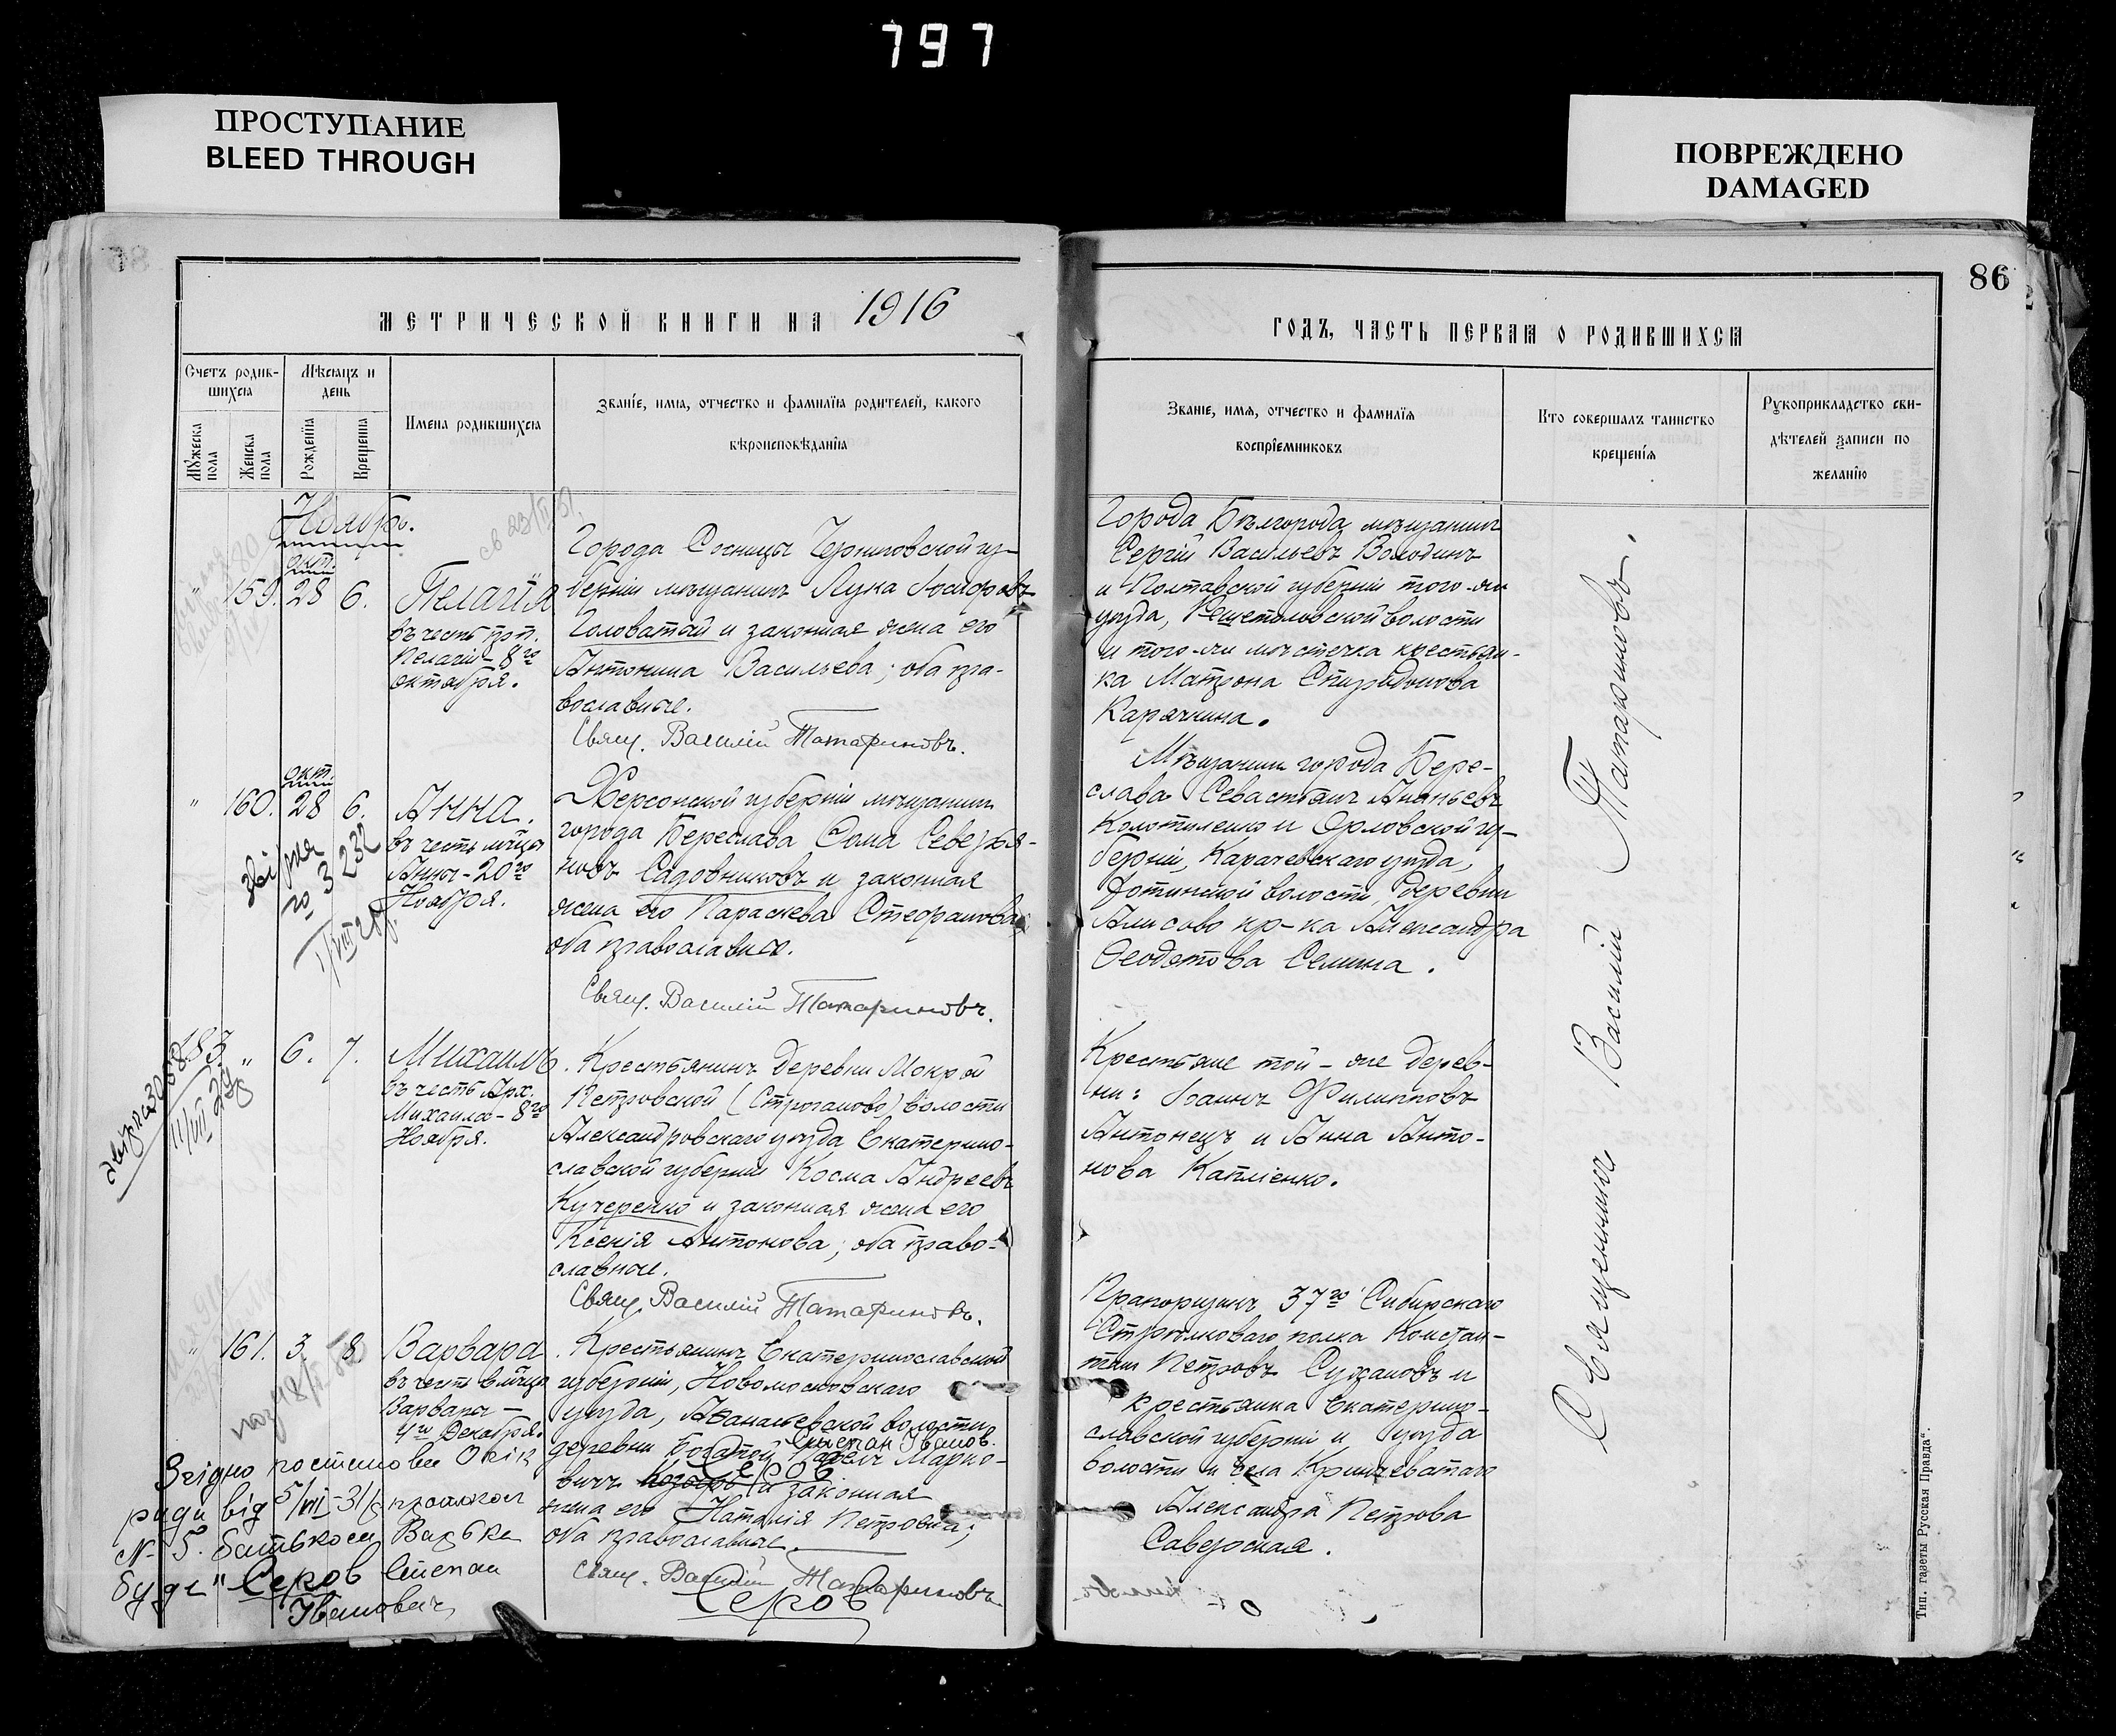 797
ПРОСТУПАНИЕ
BLEED THROUGH
ПОВРЕЖДЕНО
DAMAGED
86
МЕТРИЧЕСКОЙ КНИГИ НА 1916
ГОДЪ, ЧАСТЬ ПЕРВАЯ О РОДИВШИХСЯ
Счетъ родив-
шихся
Мѣсяцъ и
день
Мужеска пола
Женска пола
Рожденія
Крещенія
Имена родившихся
Званіе, имя, отчество и фамилія родителей, какого
вѣроисповѣданія
Званіе, имя, отчество и фамилія
воспріемниковъ
Кто совершалъ таинство
крещенія
Рукоприкладство сви-
дѣтелей записи по
желанію
Ноябрь.
окт.
" 159. 28 6.
Пелагія
въ честь прп.
Пелагіи - 8го
октября.
Города Сосницы Черниговской гу-
берніи мѣщанинъ Лука Іосифовъ
Головатый и законная жена его
Антонина Васильева; оба пра-
вославные.
Свящ. Василій Татариновъ.
Города Бѣлгорода мѣщанинъ
Сергій Васильевъ Володинъ
и Полтавской губерніи того-же
уѣзда, Решетиловской волости
и того-же мѣстечка крестьян-
ка Матрона Спиридонова
Карячкина.
окт.
" 160. 28 6.
Анна.
въ честь мчцы
Анны - 20го
Ноября.
звірена
1/VIII 29р.
Херсонской губерніи мѣщанинъ
города Береслава Сама Северья-
новъ Садовниковъ и законная
жена его Параскева Стефанова;
оба православные.
Свящ. Василій Татариновъ.
Мѣщанинъ города Бере-
слава Севастьянъ Ананьевъ
Колотиленко и Орловской гу-
берніи, Карачевскаго уѣзда,
волости, деревни
Алисово кр-ка Александра
Феодотова Селина.
183. " 6. 7.
Михаилъ.
въ честь Арх.
Михаила - 8го
Ноября.
Крестьянинъ деревни Мокрой
Петровской (Строганово) волости
Александровскаго уѣзда Екатерино-
славской губерніи Косма Андреевъ
Кучеренко и законная жена его
Ксенія Антонова; оба право-
славные.
Свящ. Василій Татариновъ.
Крестьяне той-же дерев-
ни: Іоаннъ Филипповъ
Антонецъ и Анна Анто-
нова Капліенко.
" 161. 3. 8
Варвара.
въ честь вмчцы
Варвары -
4го Декабря.
Крестьянинъ Екатеринославской
губерніи, Новомосковскаго
уѣзда, Афанасьевской волости
деревни Богатой Павелъ Марко-
Степан Іванов.
вичъ Серов и законная
жена его Наталія Петровна;
оба православные.
Свящ. Василій Татариновъ
Серов
Прапорщикъ 37го Сибирскаго
Стрѣлковаго полка Констан-
тинъ Петровъ Сухановъ и
крестьянка Екатерино-
славской губерніи и уѣзда
волости и села Криничеватаго
Александра Петрова
Саверская.
Згідно постанови Окік
ради від 5/VII-31р протокол
№ 5. батьком Варвке
буде "Серов Степан
Іванович
Священникъ Василій Татариновъ.
Тип. газеты Русская Правда".